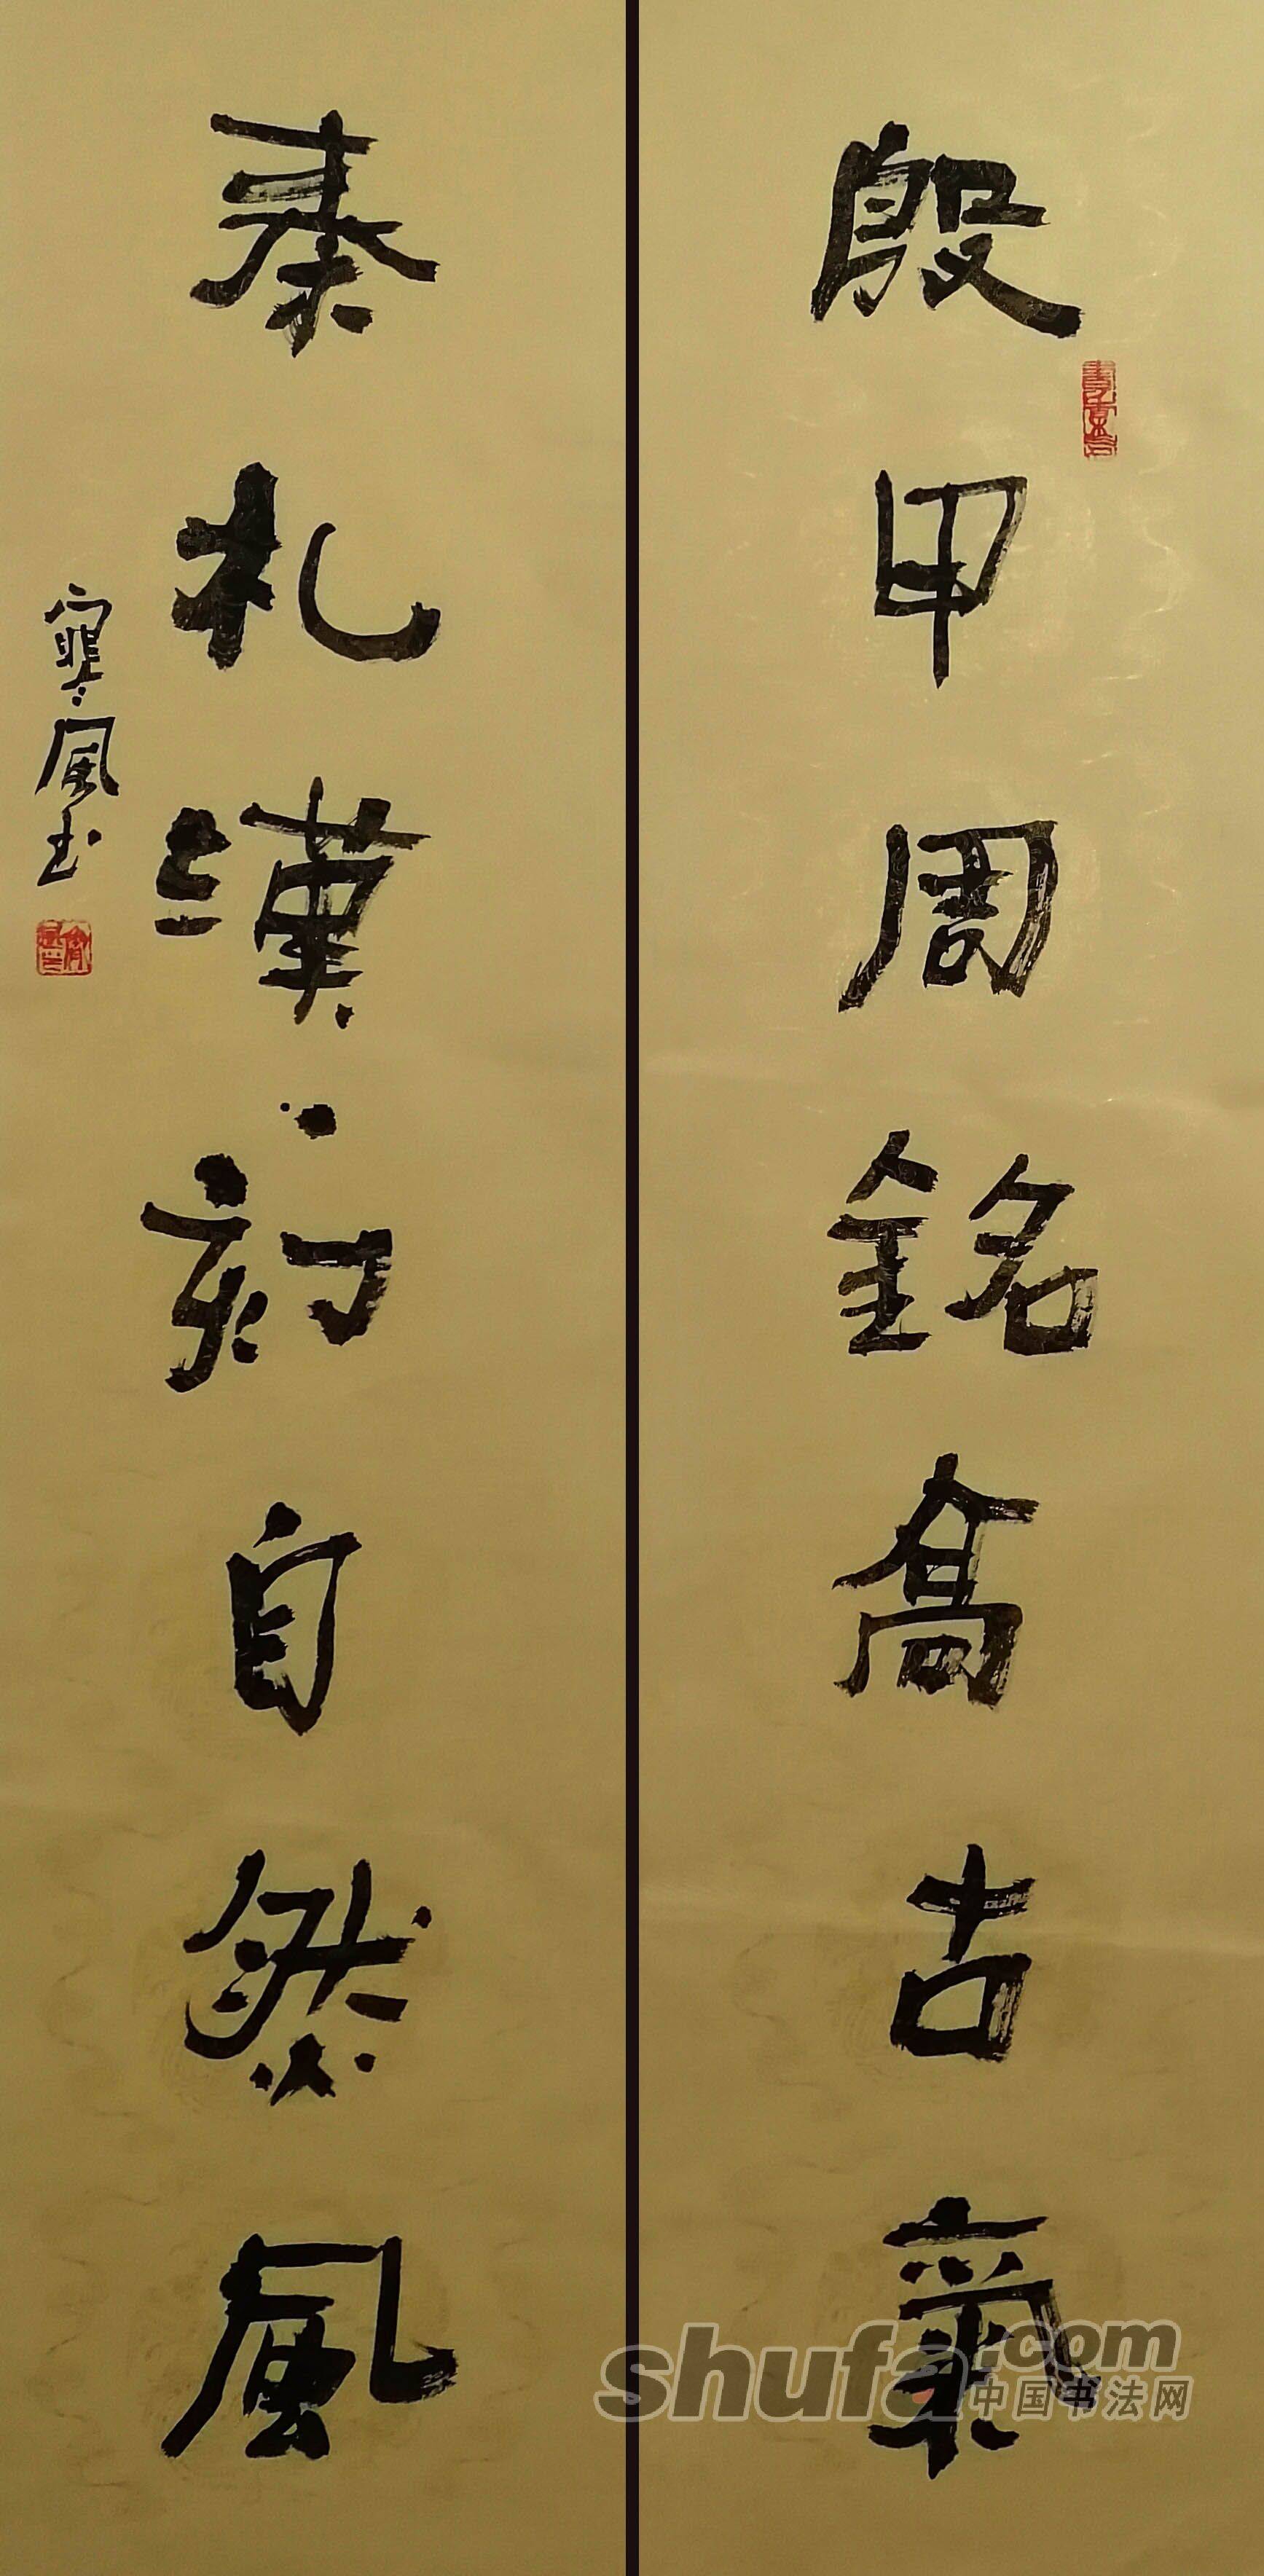 殷甲周銘高古氣
秦札漢刻自然風
寒風书
shufa.com
中国书法网